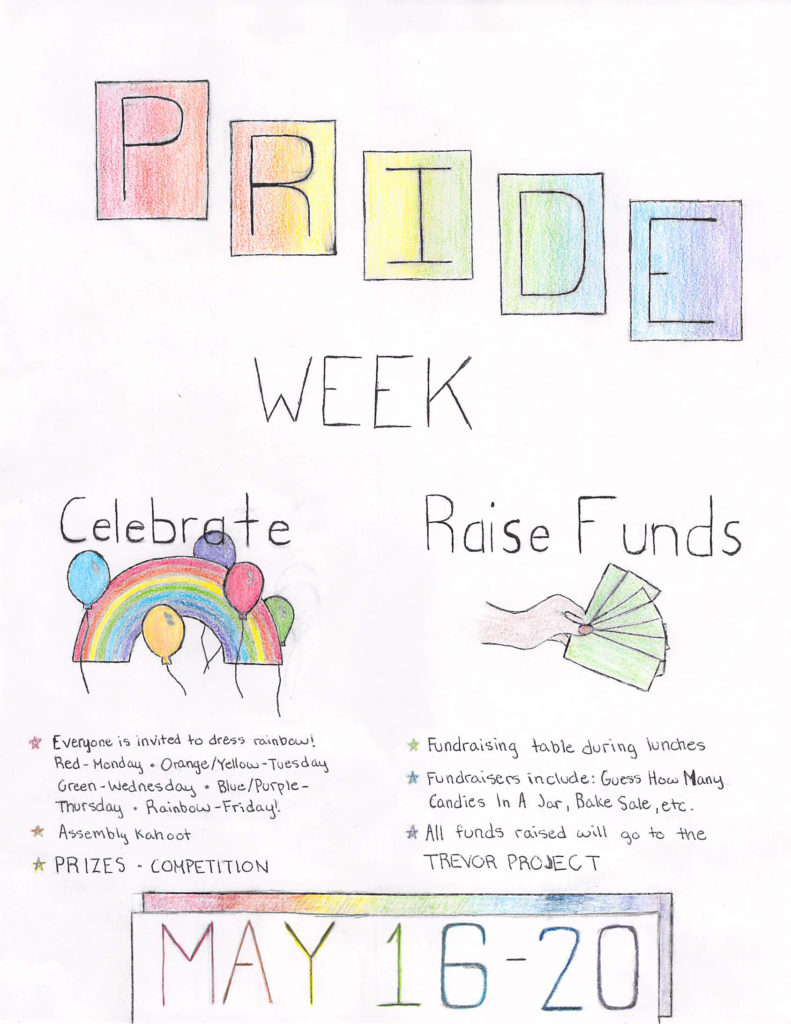 PRIDE
WEEK
Celebrate
Everyone is invited to dress rainbow!
Red - Monday • Orange/Yellow - Tuesday
Green - Wednesday • Blue/Purple -
Thursday • Rainbow - Friday!
Assembly Kahoot
PRIZES - COMPETITION
Raise Funds
Fundraising table during lunches
Fundraisers include: Guess How Many
Candies In A Jar, Bake Sale, etc.
All funds raised will go to the
TREVOR PROJECT
MAY 16-20